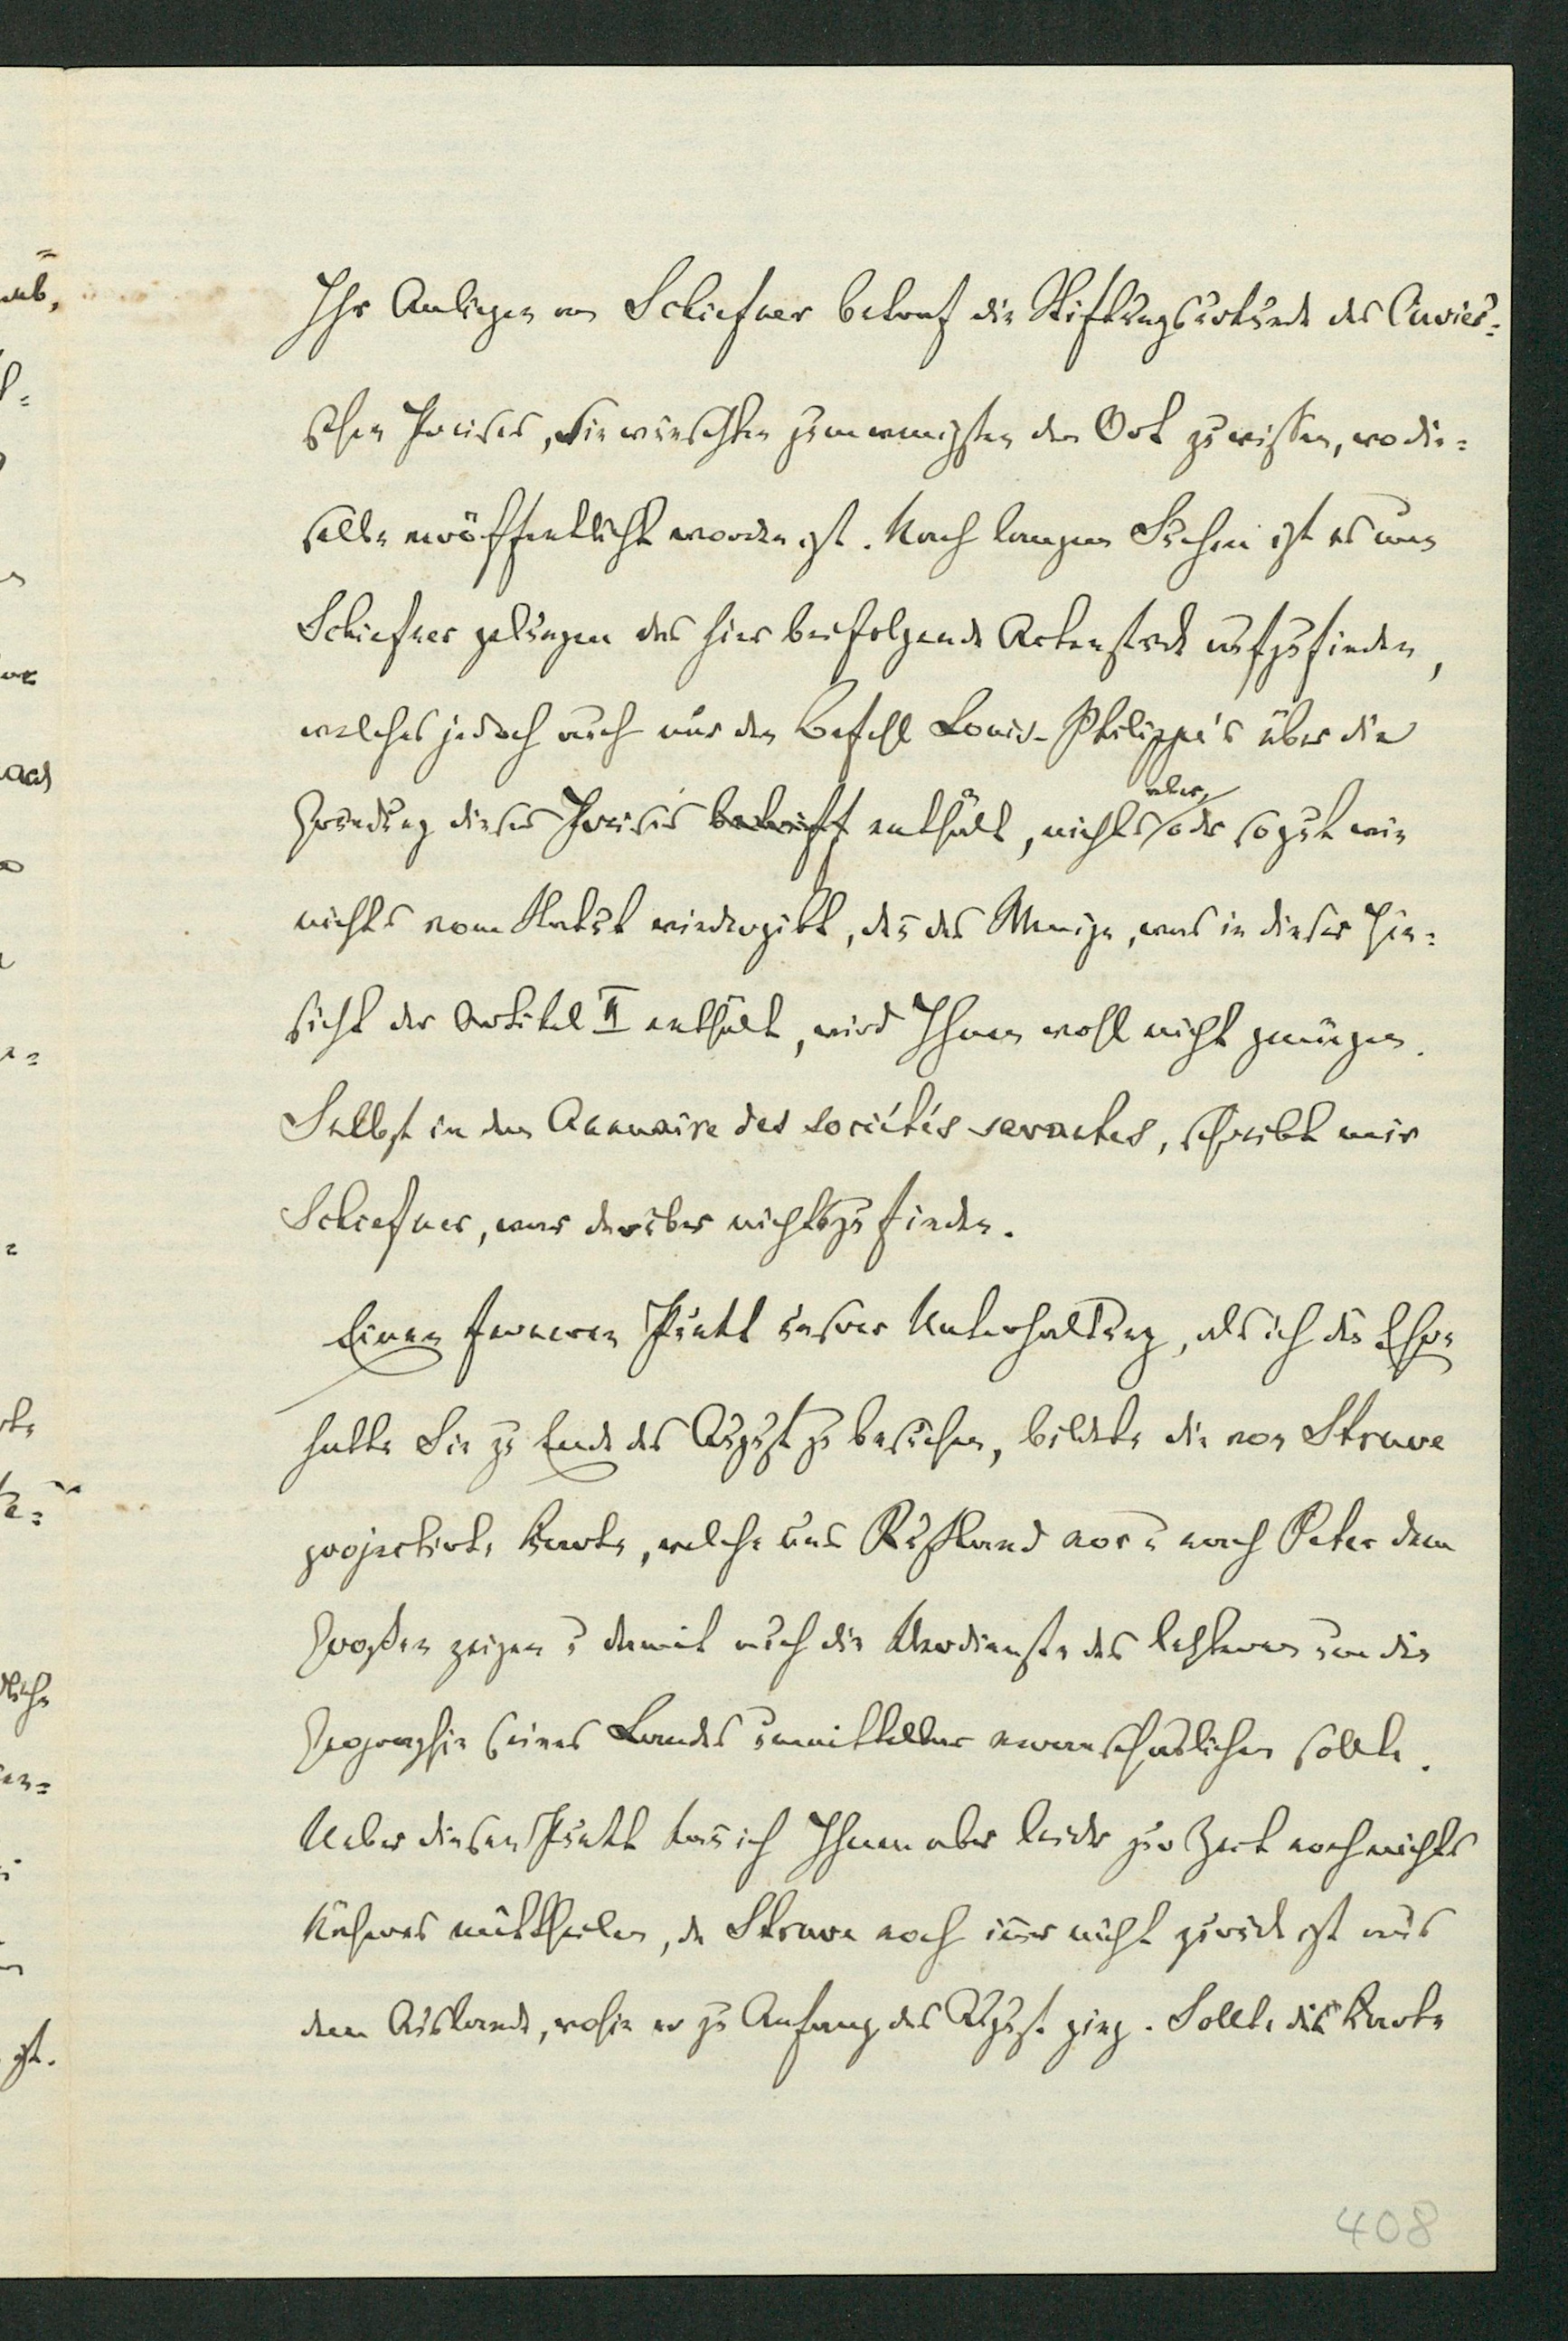 Ihr Anliegen an Schiefner betraf die Stiftungsurkunde des Cuvier=
schen Preises, Sie wünschten zum wenigsten den Ort zu wissen, wo die=
selbe veröffentlicht worden ist. Nach langem Suchen ist es nun
Schiefner gelungen das hier beifolgende Actenstück aufzufinden,
welches jedoch auch nur den Befehl Louis-Philippe's über die
Gründung dieses Preises betrifft enthält, nichts aber, oder so gut wie
nichts vom Statut wiedergibt, den das Wenige, was in dieser Hin=
sicht der Artikel II enthält, wird Ihnen wohl nicht genügen.
Selbst in dem Annuaire des sociétés savantes, schreibt mir
Schiefner, war darüber nichts zu finden.
Einen ferneren Punkt unsrer Unterhaltung, als ich die Ehre
hatte Sie zu Ende des August zu besuchen, bildete die von Struve
projectirte Karte, welche uns Rußland vor u nach Peter dem
Großen zeigen u damit auch die Verdienste des letzteren um die
Geographie seines Landes unmittelbar veranschaulichen sollte.
Ueber diesen Punkt kan ich Ihnen aber leider zur Zeit noch nichts
Näheres mittheilen, da Struve noch imer nicht zurück ist aus
dem Auslande, wohin er zu Anfang des August ging. Sollte die Karte
408